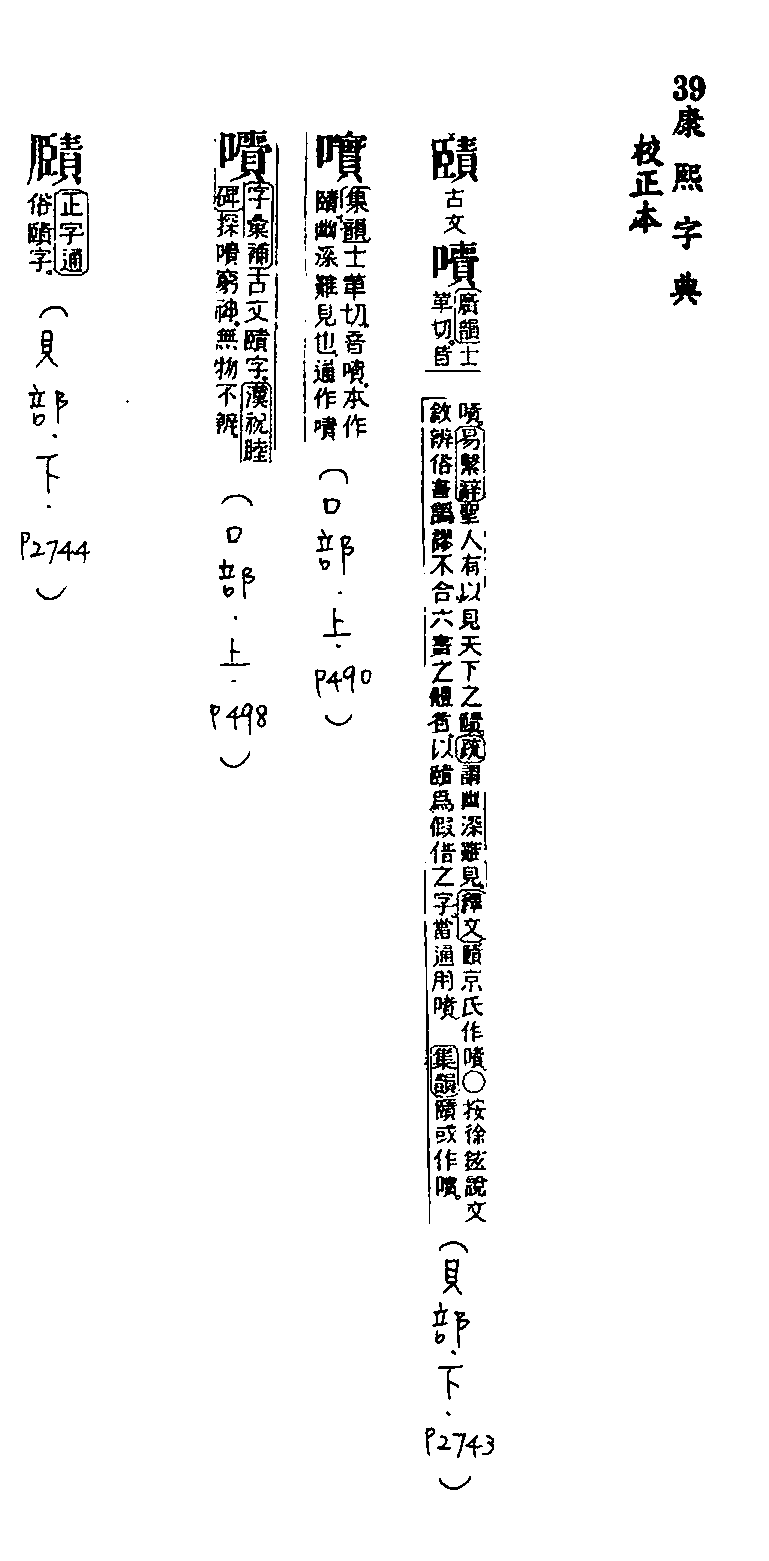 39康熙字典
校正本
賾
古文
嘖
廣韻士
革切音
嘖易繫辭聖人有以見天下之賾疏謂幽深難見釋文賾京氏作嘖○按徐鉉說文
敘辨俗書譌謬不合六書之體者以賾爲假借之字當通用嘖 集韻賾或作嘖
(貝部.下.P2743)
集韻士革切音嘖本作
賾幽深難見也通作嘖
(口部.上.P490)
字彙補古文賾字漢祝睦
碑探嘖窮神無物不辨
(口部.上.P498)
正字通
俗賾字
(貝部.下.P2744)